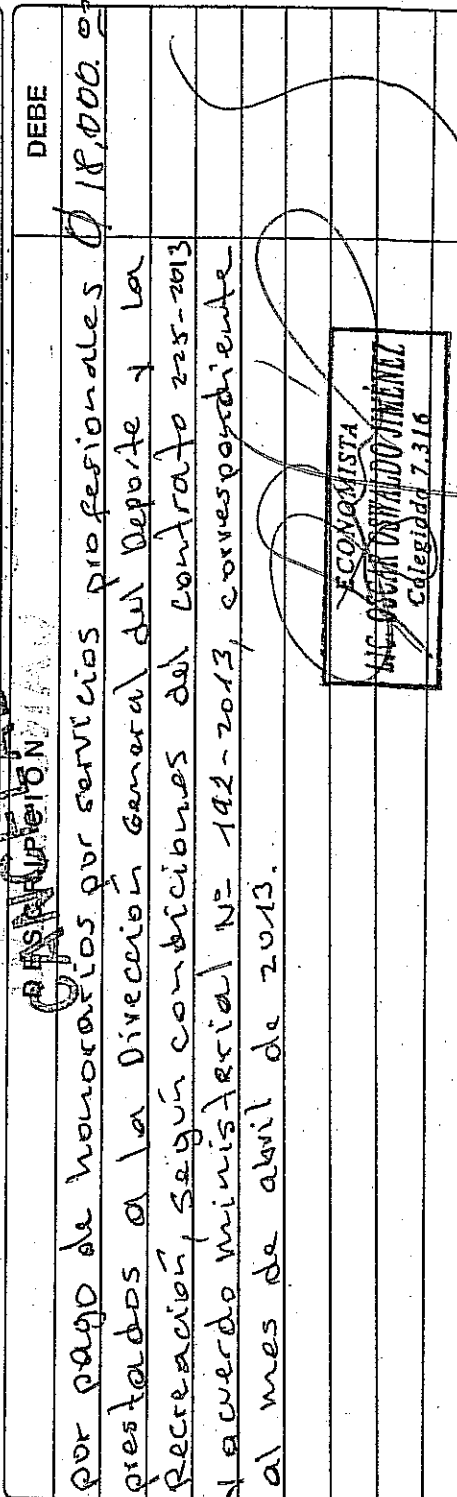 DESCRIPCION
CANCELADO
DEBE
por pago de honorarios por servicios profesionales Q 18,000.00
prestados a la Dirección General del Deporte y la
Recreación, según condiciones del contrato 225-2013
acuerdo ministerial Nº 192-2013, correspondiente
al mes de abril de 2013.
ECONOMISTA
LIC. OSCAR OSWALDO JIMENEZ
Colegiado 7,316